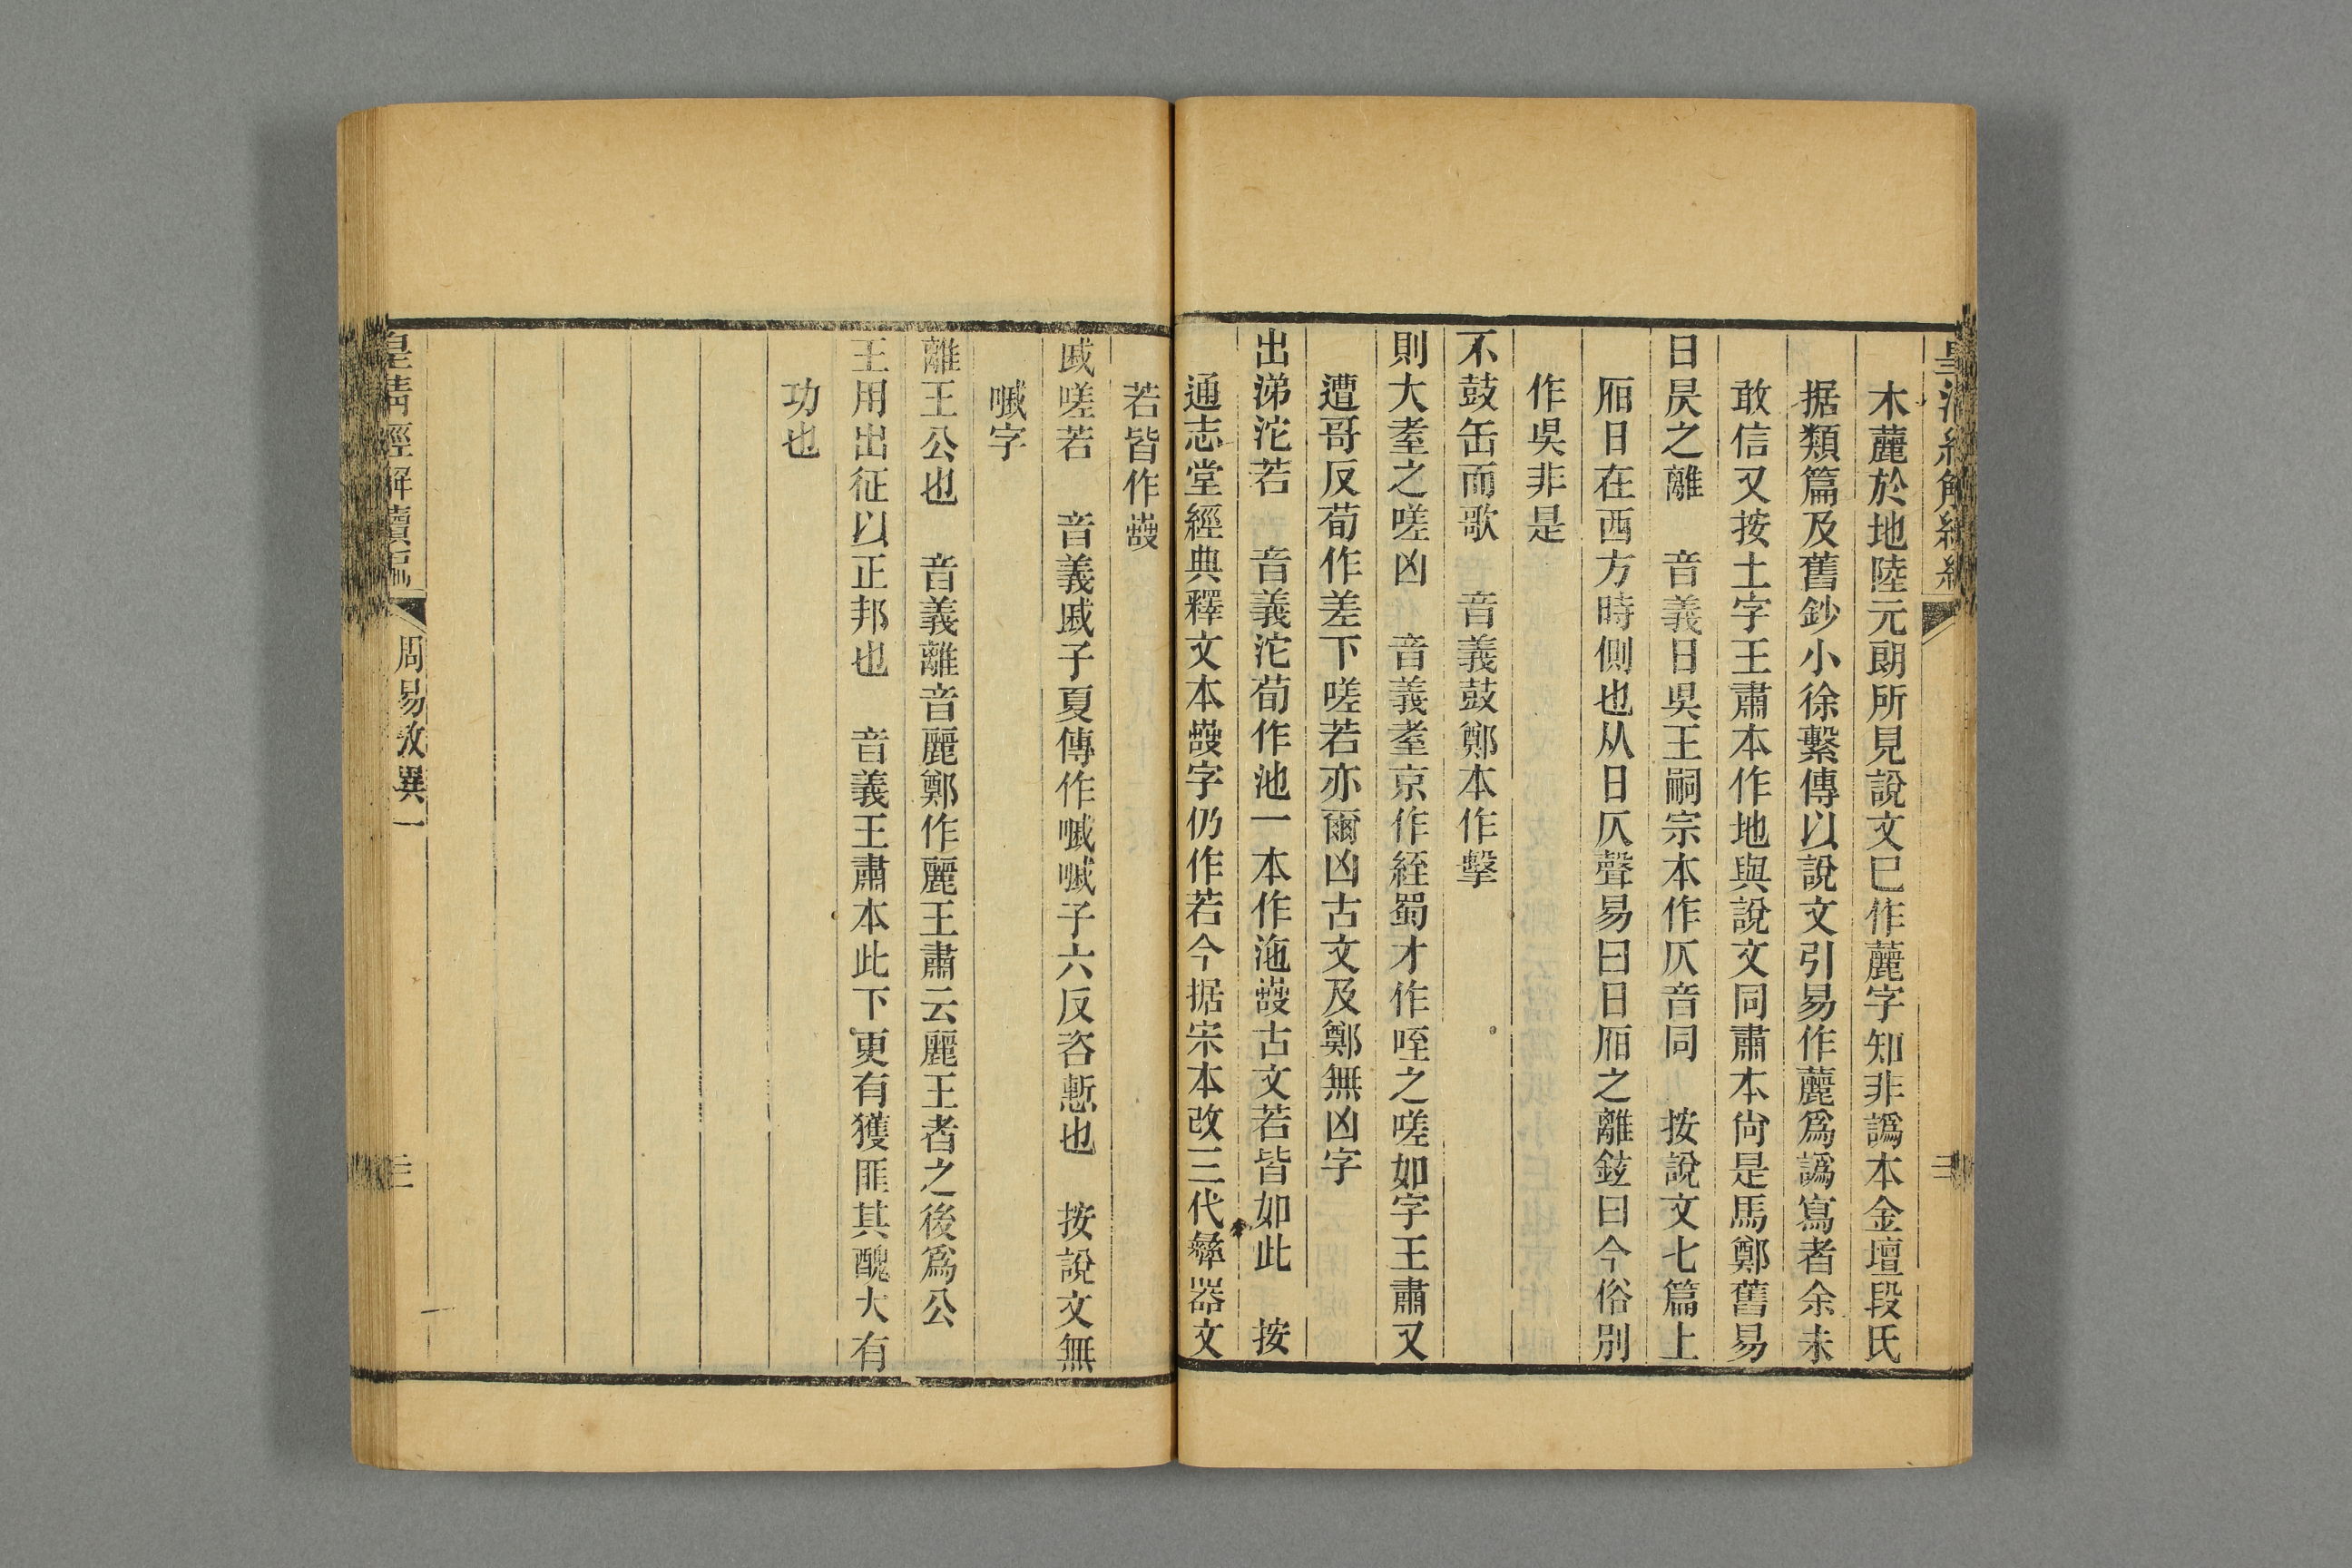 木麓於地陸元朗所見說文巳作麓字知非譌本金壇段氏
据類篇及舊鈔小徐繫傳以說文引易作麓爲譌寫者余未
敢信又按土字王肅本作地與說文同肅本尙是馬鄭舊易
日昃之離　音義日吳王嗣宗本作仄音同　按說文七篇上
厢日在西方時側也从日仄聲易曰日厢之離鉉曰今俗別
作吳非是
不鼓缶而歌　音義鼓鄭本作擊
則大耊之嗟凶　音義耊京作絰蜀才作咥之嗟如字王肅又
遭哥反荀作差下嗟若亦爾凶古文及鄭無凶字
出涕沱若　音義沱荀作池一本作沲𦱶古文若皆如此　按
通志堂經典釋文本𦱶字仍作若今据宋本改三代彝器文
若皆作𦱶
戚嗟若　音義戚子夏傳作嘁嘁子六反咨慙也　按說文無
嘁字
離王公也　音義離音麗鄭作麗王肅云麗王者之後爲公
王用出征以正邦也　音義王肅本此下更有獲匪其醜大有
功也
皇清經解續編　周易攷異一